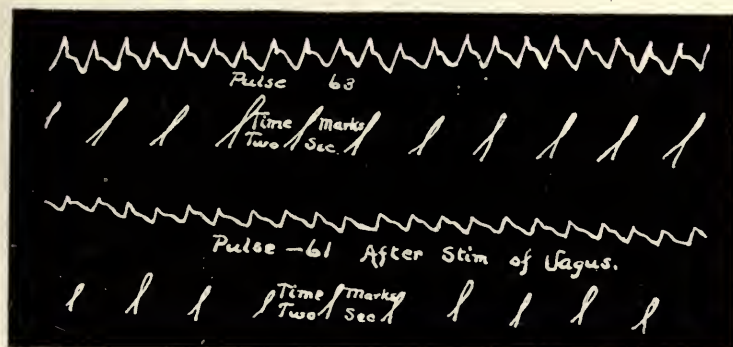 Pulse 63
Time Marks
Two Sec.
Pulse - 61 After Stim of Vagus.
Time Marks
Two Sec